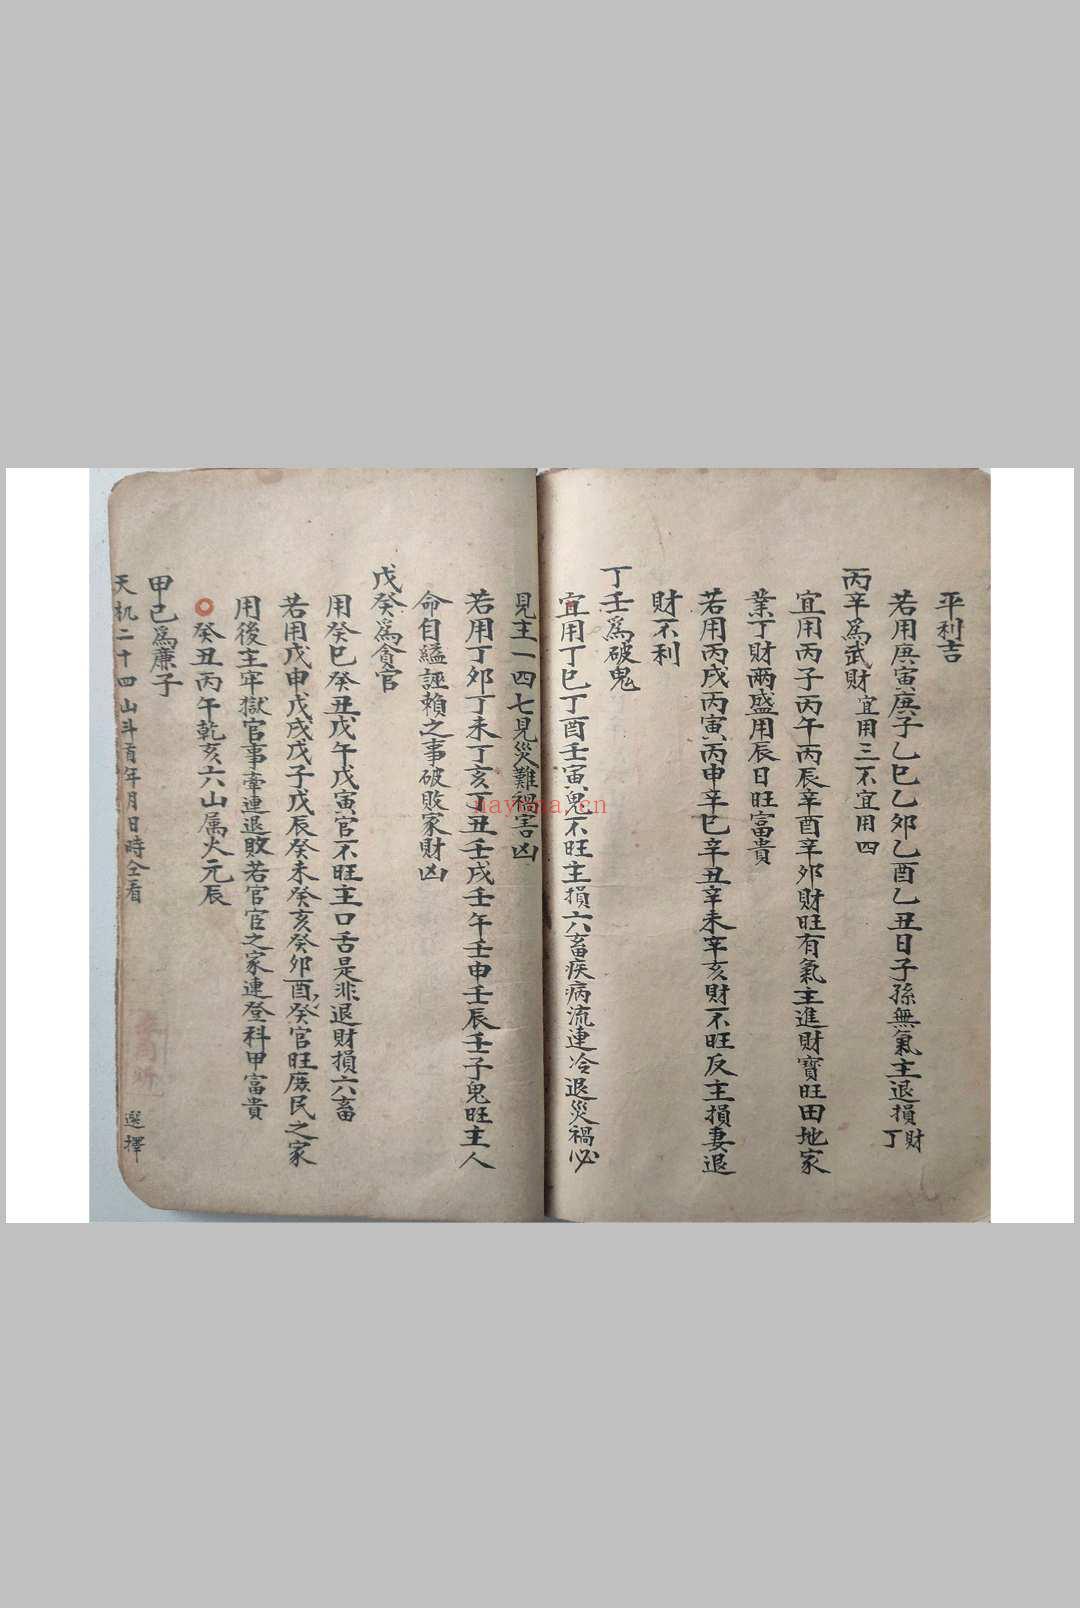 平利吉
若用庚寅庚子乙巳乙夘乙酉乙丑日子孫無氣主退損財丁
丙辛爲武財宜用三不宜用四
宜用丙子丙午丙辰辛酉辛夘財旺有氣主進財寶旺田地家
業丁財兩盛用辰日旺富貴
若用丙戌丙寅丙申辛巳辛丑辛未辛亥財不旺反主損妻退
財不利
丁壬爲破鬼
宜用丁巳丁酉壬寅鬼不旺主損六畜疾病流連冷退災禍必
見主一四七見災難禍害凶
若用丁夘丁未丁亥丁丑壬戌壬午壬申壬辰壬子鬼旺主人
命自縊誣賴之事破敗家財凶
戊癸爲貪官
用癸巳癸丑戊午戊寅官不旺主口舌是非退財損六畜
若用戊申戊戌戊子戊辰癸未癸亥癸夘酉癸官旺庻民之家
用後主牢獄官事牽連退敗若官宦之家連登科甲富貴
癸丑丙午乾亥六山属火元辰
甲己爲廉子
天机二十四山斗首年月日時仝看
選擇
nayona.cn